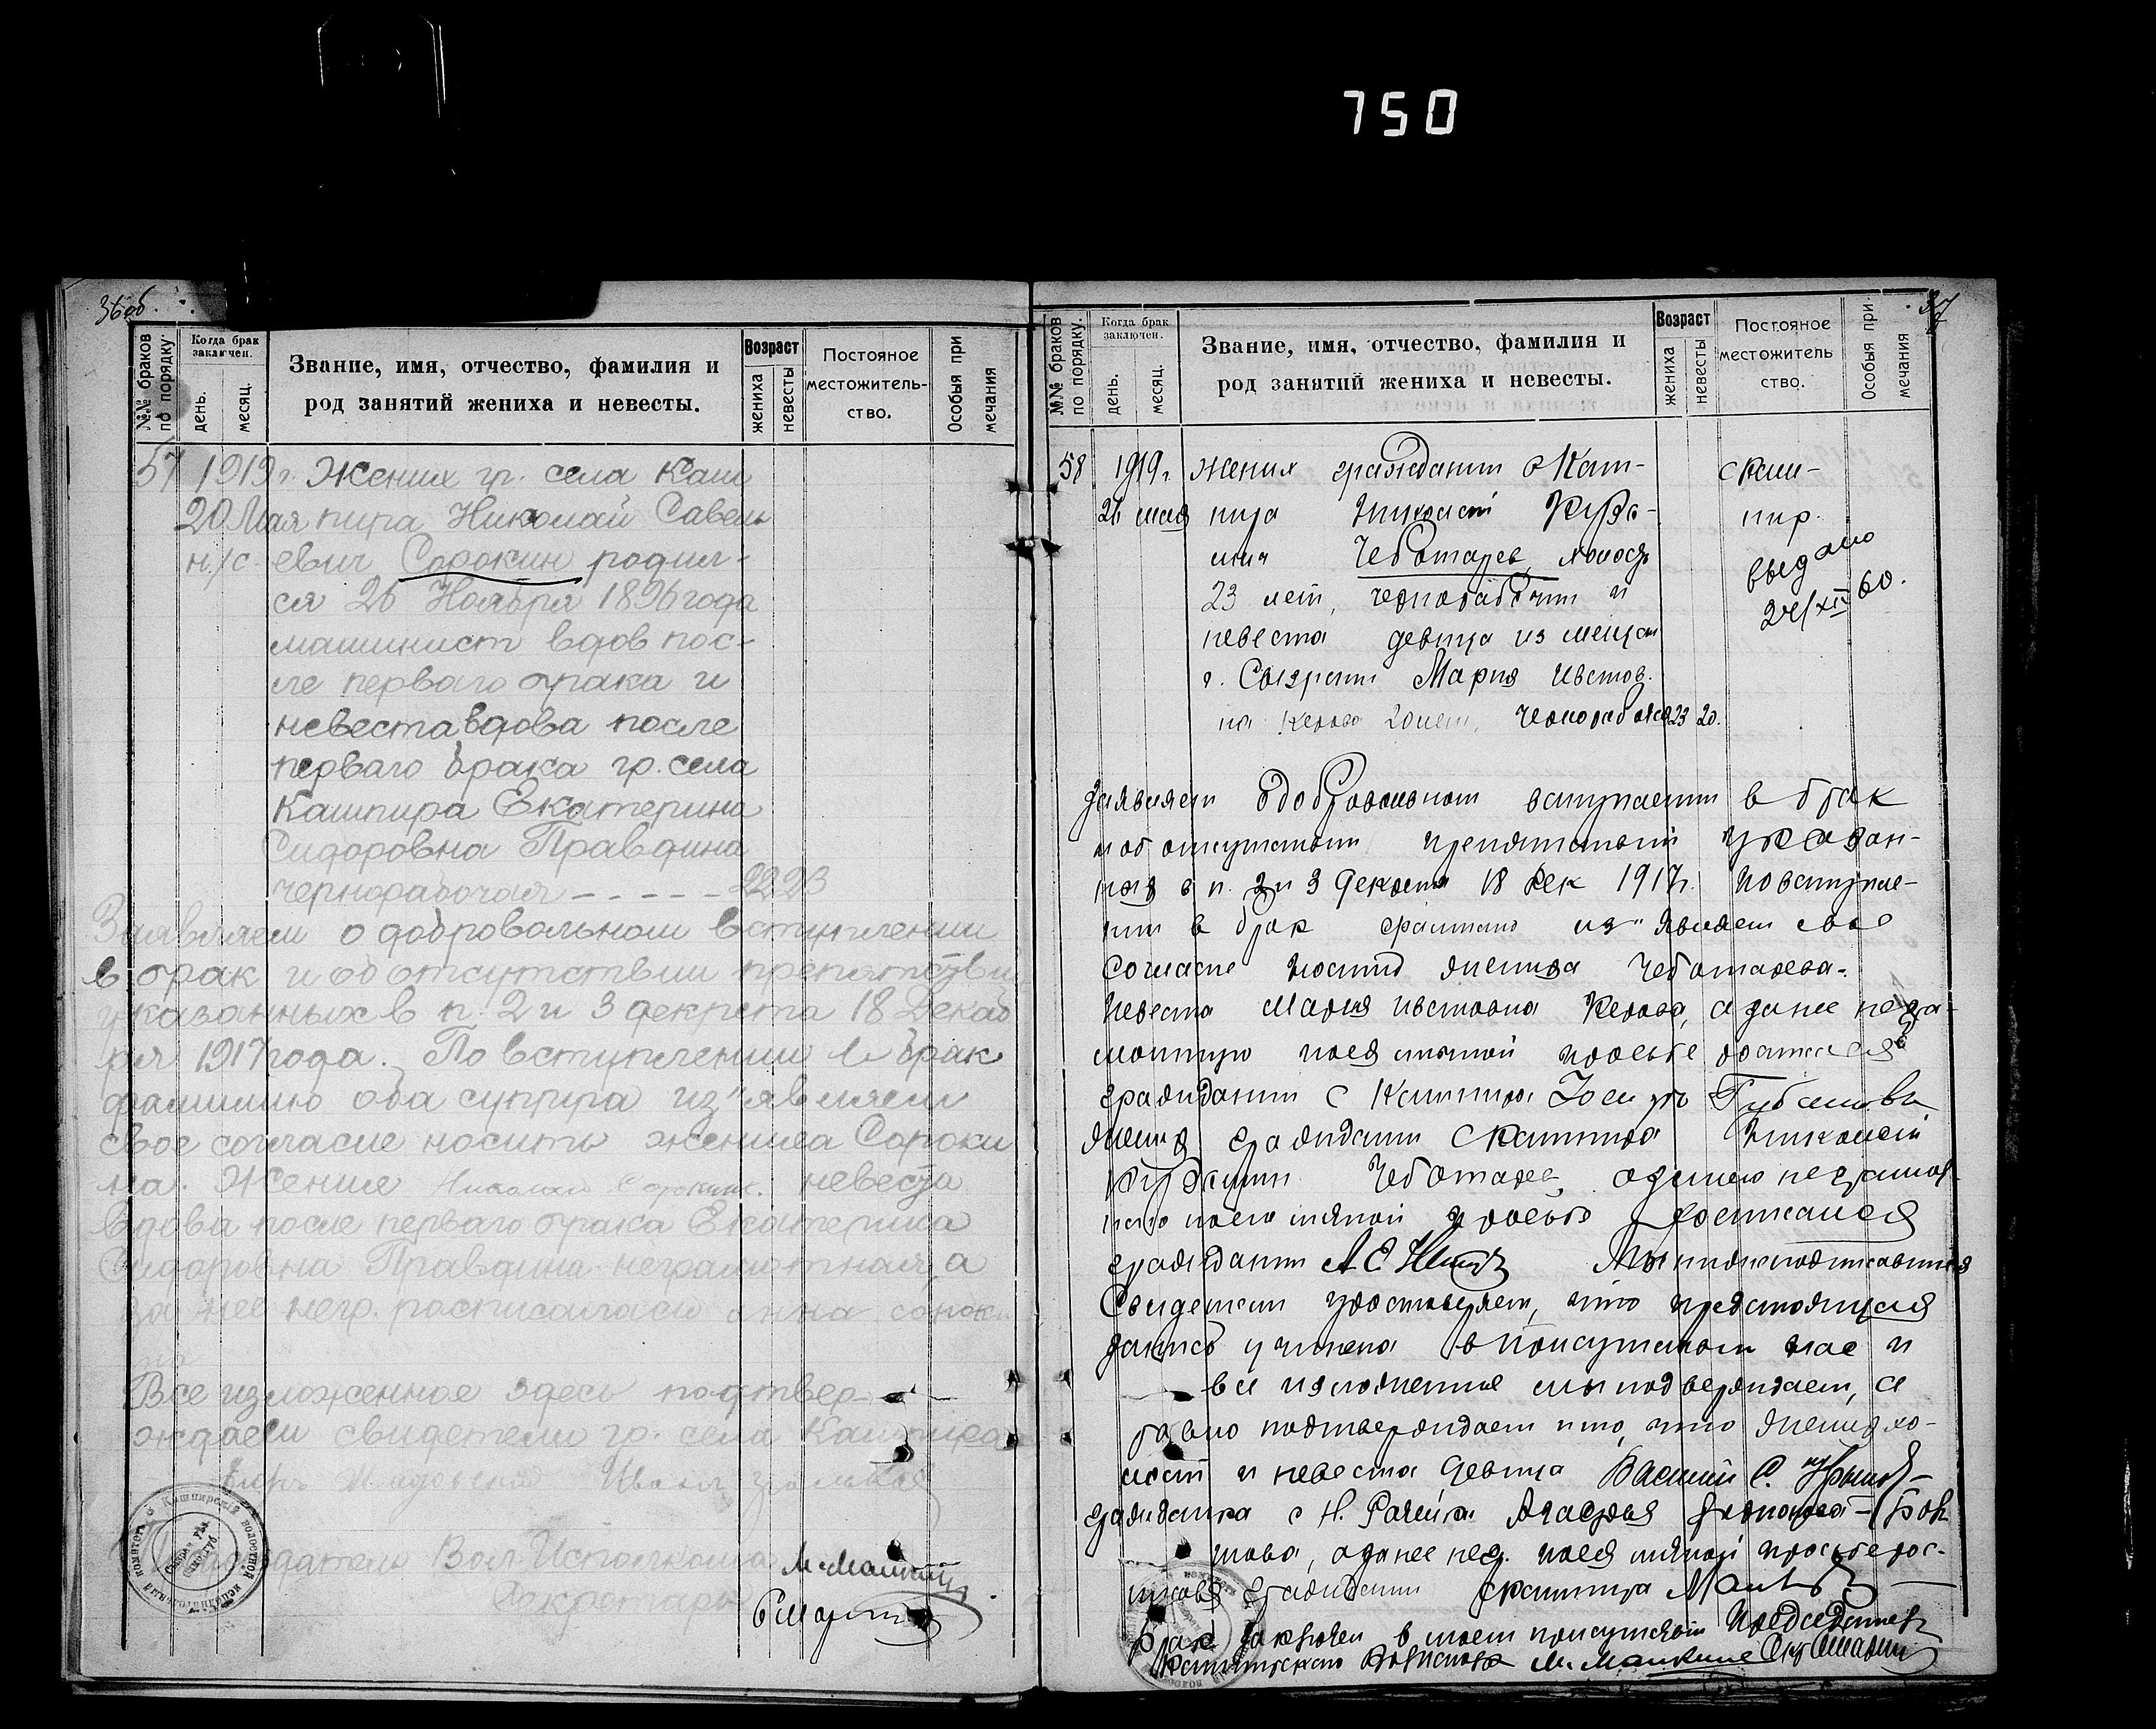 750
36об.
№№ браков по порядку.
Когда брак заключен.
день.
месяц.
Звание, имя, отчество, фамилия и
род занятий жениха и невесты.
Возраст
жениха
невесты
Постояное
местожитель-
ство.
Особыя при
мечания
57 1919 г. Жених гр. села Каш
20 Мая пира Николай Савель
н./с. евич Сорокин родил-
ся 26 Ноября 1896 года
машинист вдов пос-
ле перваго брака и
невеста вдова после
перваго брака гр. села
Кашпира Екатерина
Сидоровна Правдина
чернорабочая – – – – – 22 23
Заявляем о добровольном вступлении
в брак и об отсутствии препятстви
указанных в п. 2 и 3 декрета 18 Декаб
ря 1917 года. По вступлении в брак
фамилию оба супруга из"являем
свое согласие носить жениха Сороки
на. Жених Николай Сорокин. невеста
вдова после перваго брака Екатерина
Сидоровна Правдина неграмотная, а
за нее негр. расписалась анна сороки
на
Все изложенное здесь подтвер-
ждаем свидетели гр. села Кашпира
Иван
Председатель Вол. Исполкома М. Манкин
Секретарь
37
№№ браков по порядку.
Когда брак заключен.
день.
месяц.
Звание, имя, отчество, фамилия и
род занятий жениха и невесты.
Возраст
жениха
невесты
Постояное
местожитель
ство.
Особыя при
мечания
58 1919 г. жених гражданин с Каш- с Каш-
26 мая пира Николай Кузь- пир.
мич Чеботарев, холост
выдано
23 лет, чернорабочий и
24/XII 60.
невеста девица из мещан
г. Сызрани Мария Ивстов.
на Керова 20 лет, чернорабочая 23 20.
Заявляем о добровольном вступлении в брак
и об отсутствии препятствий указан-
ных в п. 2 и 3 декрета 18 Дек 1917 г. По вступле-
нии в брак фамилию из"являем свое
согласие носить жениха Чеботарева.
Невеста Мария Ивстовна Керова, а за нее негра-
мотную по ея личной просьбе росписался
гражданин с Кашпира Губанов
Жених гражданин с Кашпира Николай
Кузьмич Чеботарев, а за него неграмот-
наго по его личной просьбе росписался
гражданин А Е Мы нижеподписавшиеся
Свидетели удостоверяем, что предстоящая
запись учинена в присутствии нас и
все изложенное мы подверждаем, а
равно подтверждаем и то, что жених хо-
лост и невеста девица Василий С.
гражданка с Н. Рачейка
а за нее нег. по ея личной просьбе рос-
писался гражданин с Кашпира
Брак заключен в моем присутствии Председатель
Кашпирскаго Волисполк М. Манкин Секр